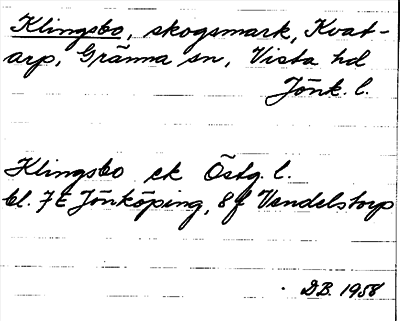 Klingsbo, skogsmark, Kvat-
arp, Gränna sn, Vista hd
Jönk. l.
Klingsbo ek Östg. l.
bl. 7E Jönköping, 8f Vendelstorp
D.B. 1958